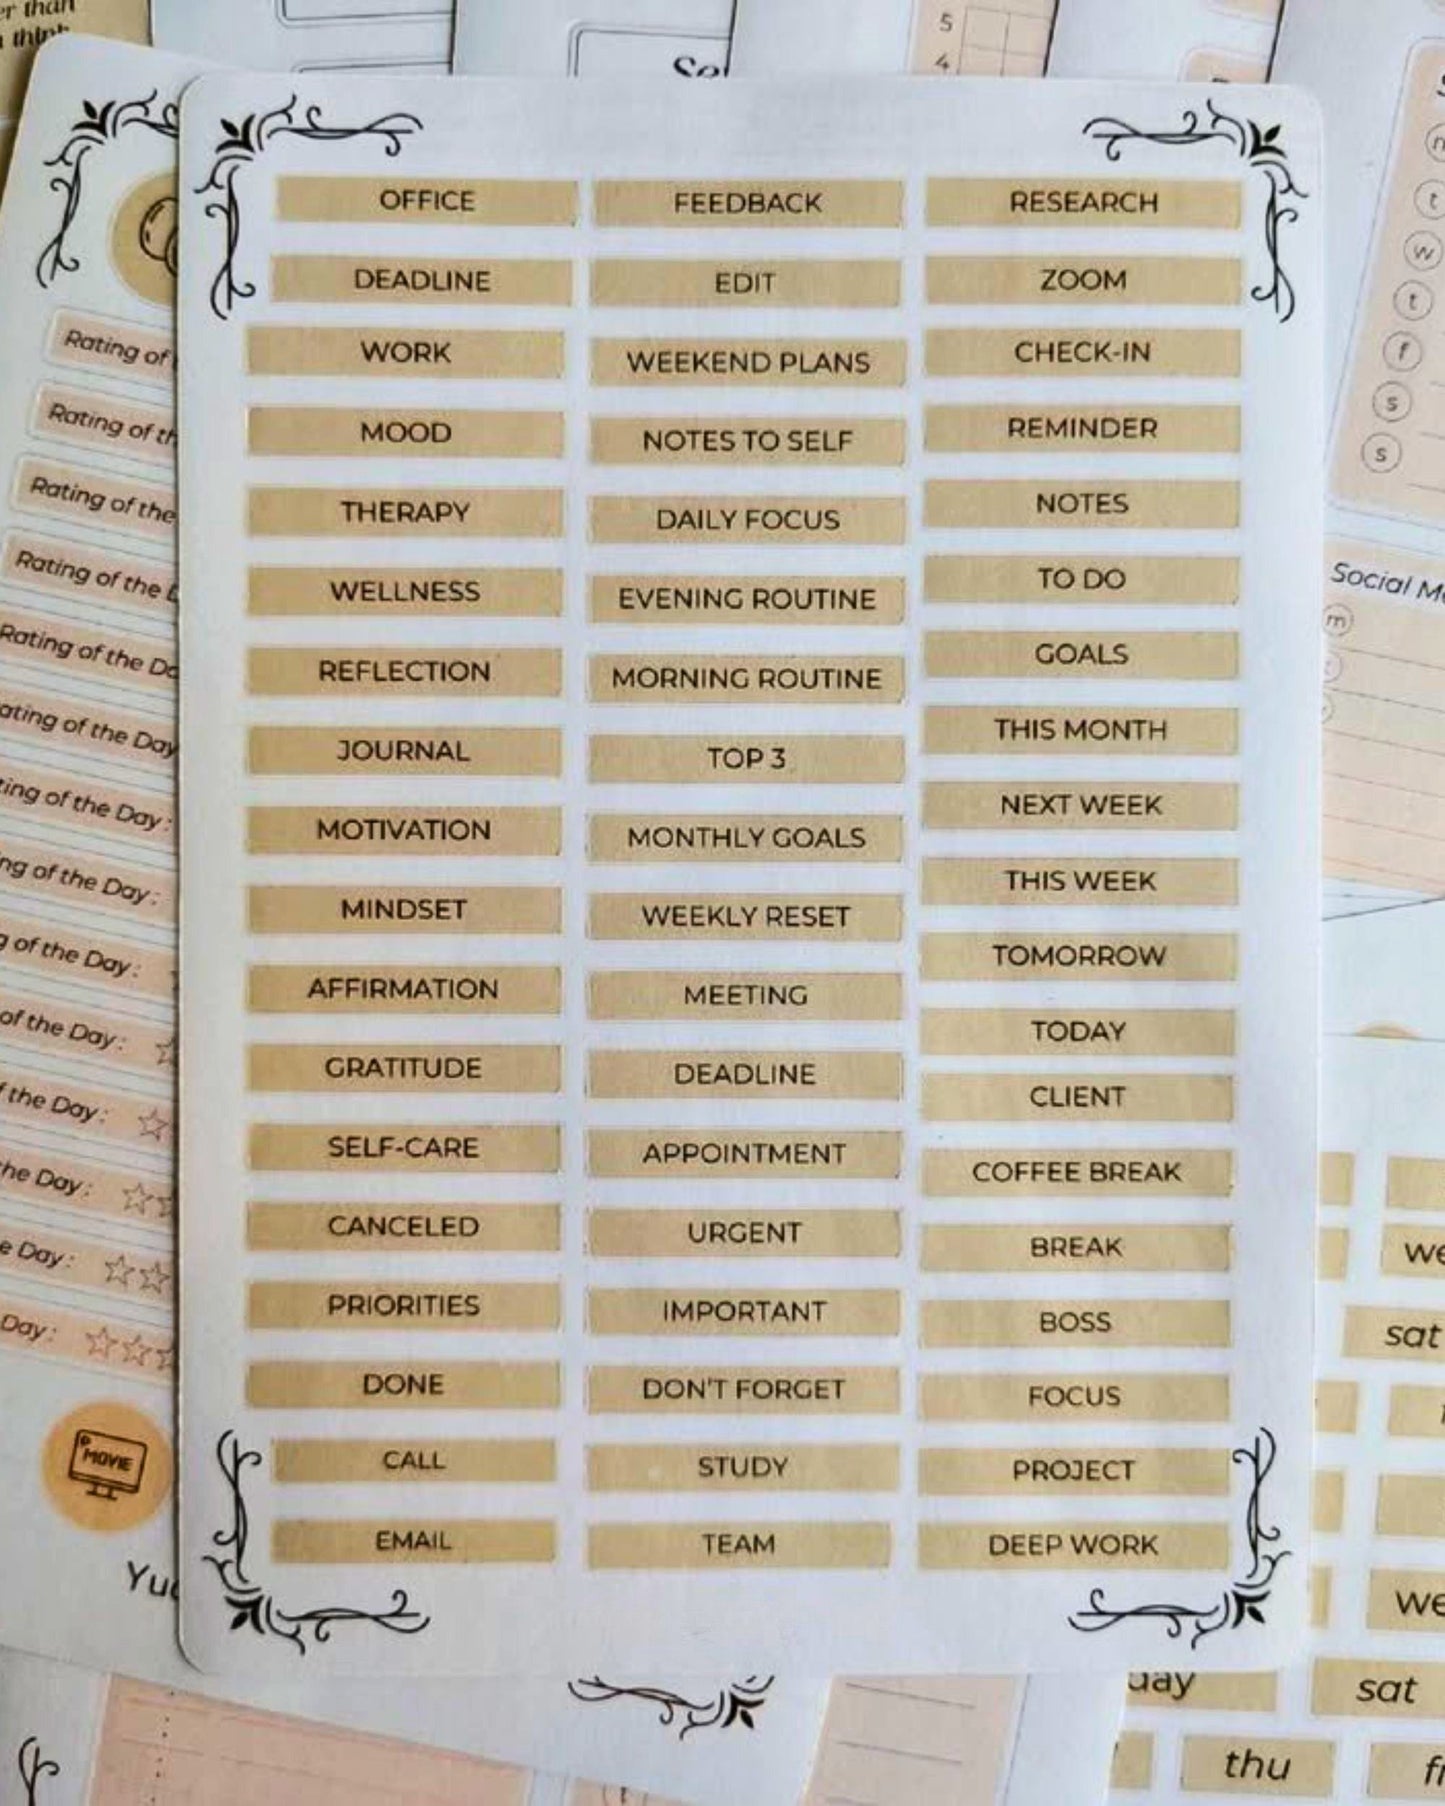 er than
think
5
4
OFFICE
DEADLINE
WORK
MOOD
THERAPY
WELLNESS
REFLECTION
JOURNAL
MOTIVATION
MINDSET
AFFIRMATION
GRATITUDE
SELF-CARE
CANCELED
PRIORITIES
DONE
CALL
EMAIL
FEEDBACK
EDIT
WEEKEND PLANS
NOTES TO SELF
DAILY FOCUS
EVENING ROUTINE
MORNING ROUTINE
TOP 3
MONTHLY GOALS
WEEKLY RESET
MEETING
DEADLINE
APPOINTMENT
URGENT
IMPORTANT
DON'T FORGET
STUDY
TEAM
RESEARCH
ZOOM
CHECK-IN
REMINDER
NOTES
TO DO
GOALS
THIS MONTH
NEXT WEEK
THIS WEEK
TOMORROW
TODAY
CLIENT
COFFEE BREAK
BREAK
BOSS
FOCUS
PROJECT
DEEP WORK
Rating of
Rating of th
Rating of the
Rating of the
Rating of the Da
ating of the Day
ting of the Day:
ng of the Day:
g of the Day:
of the Day:
f the Day:
he Day:
e Day:
Day:
MOVIE
t
w
t
f
s
s
Social Me
m
we
sat
we
day
sat
thu